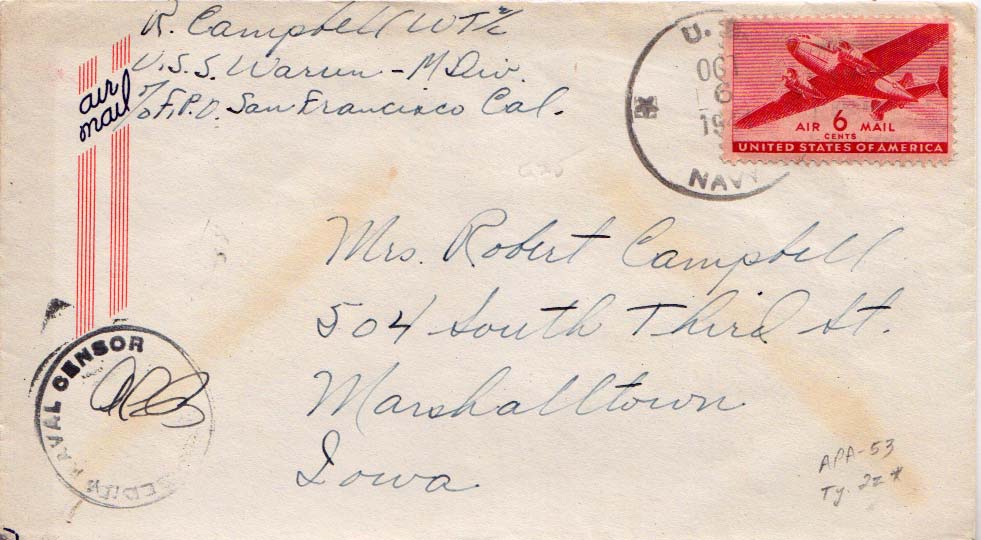 R. Campbell WT 2/c
U.S.S. Warren - M Div.
c/o F.P.O. San Francisco Cal.
air
mail
U.S.
OCT
6
19
NAVY
AIR 6 MAIL
CENTS
UNITED STATES OF AMERICA
Mrs. Robert Campbell
504 South Third St.
Marshalltown
Iowa.
NAVAL CENSOR
APA-53
Ty. 2z *